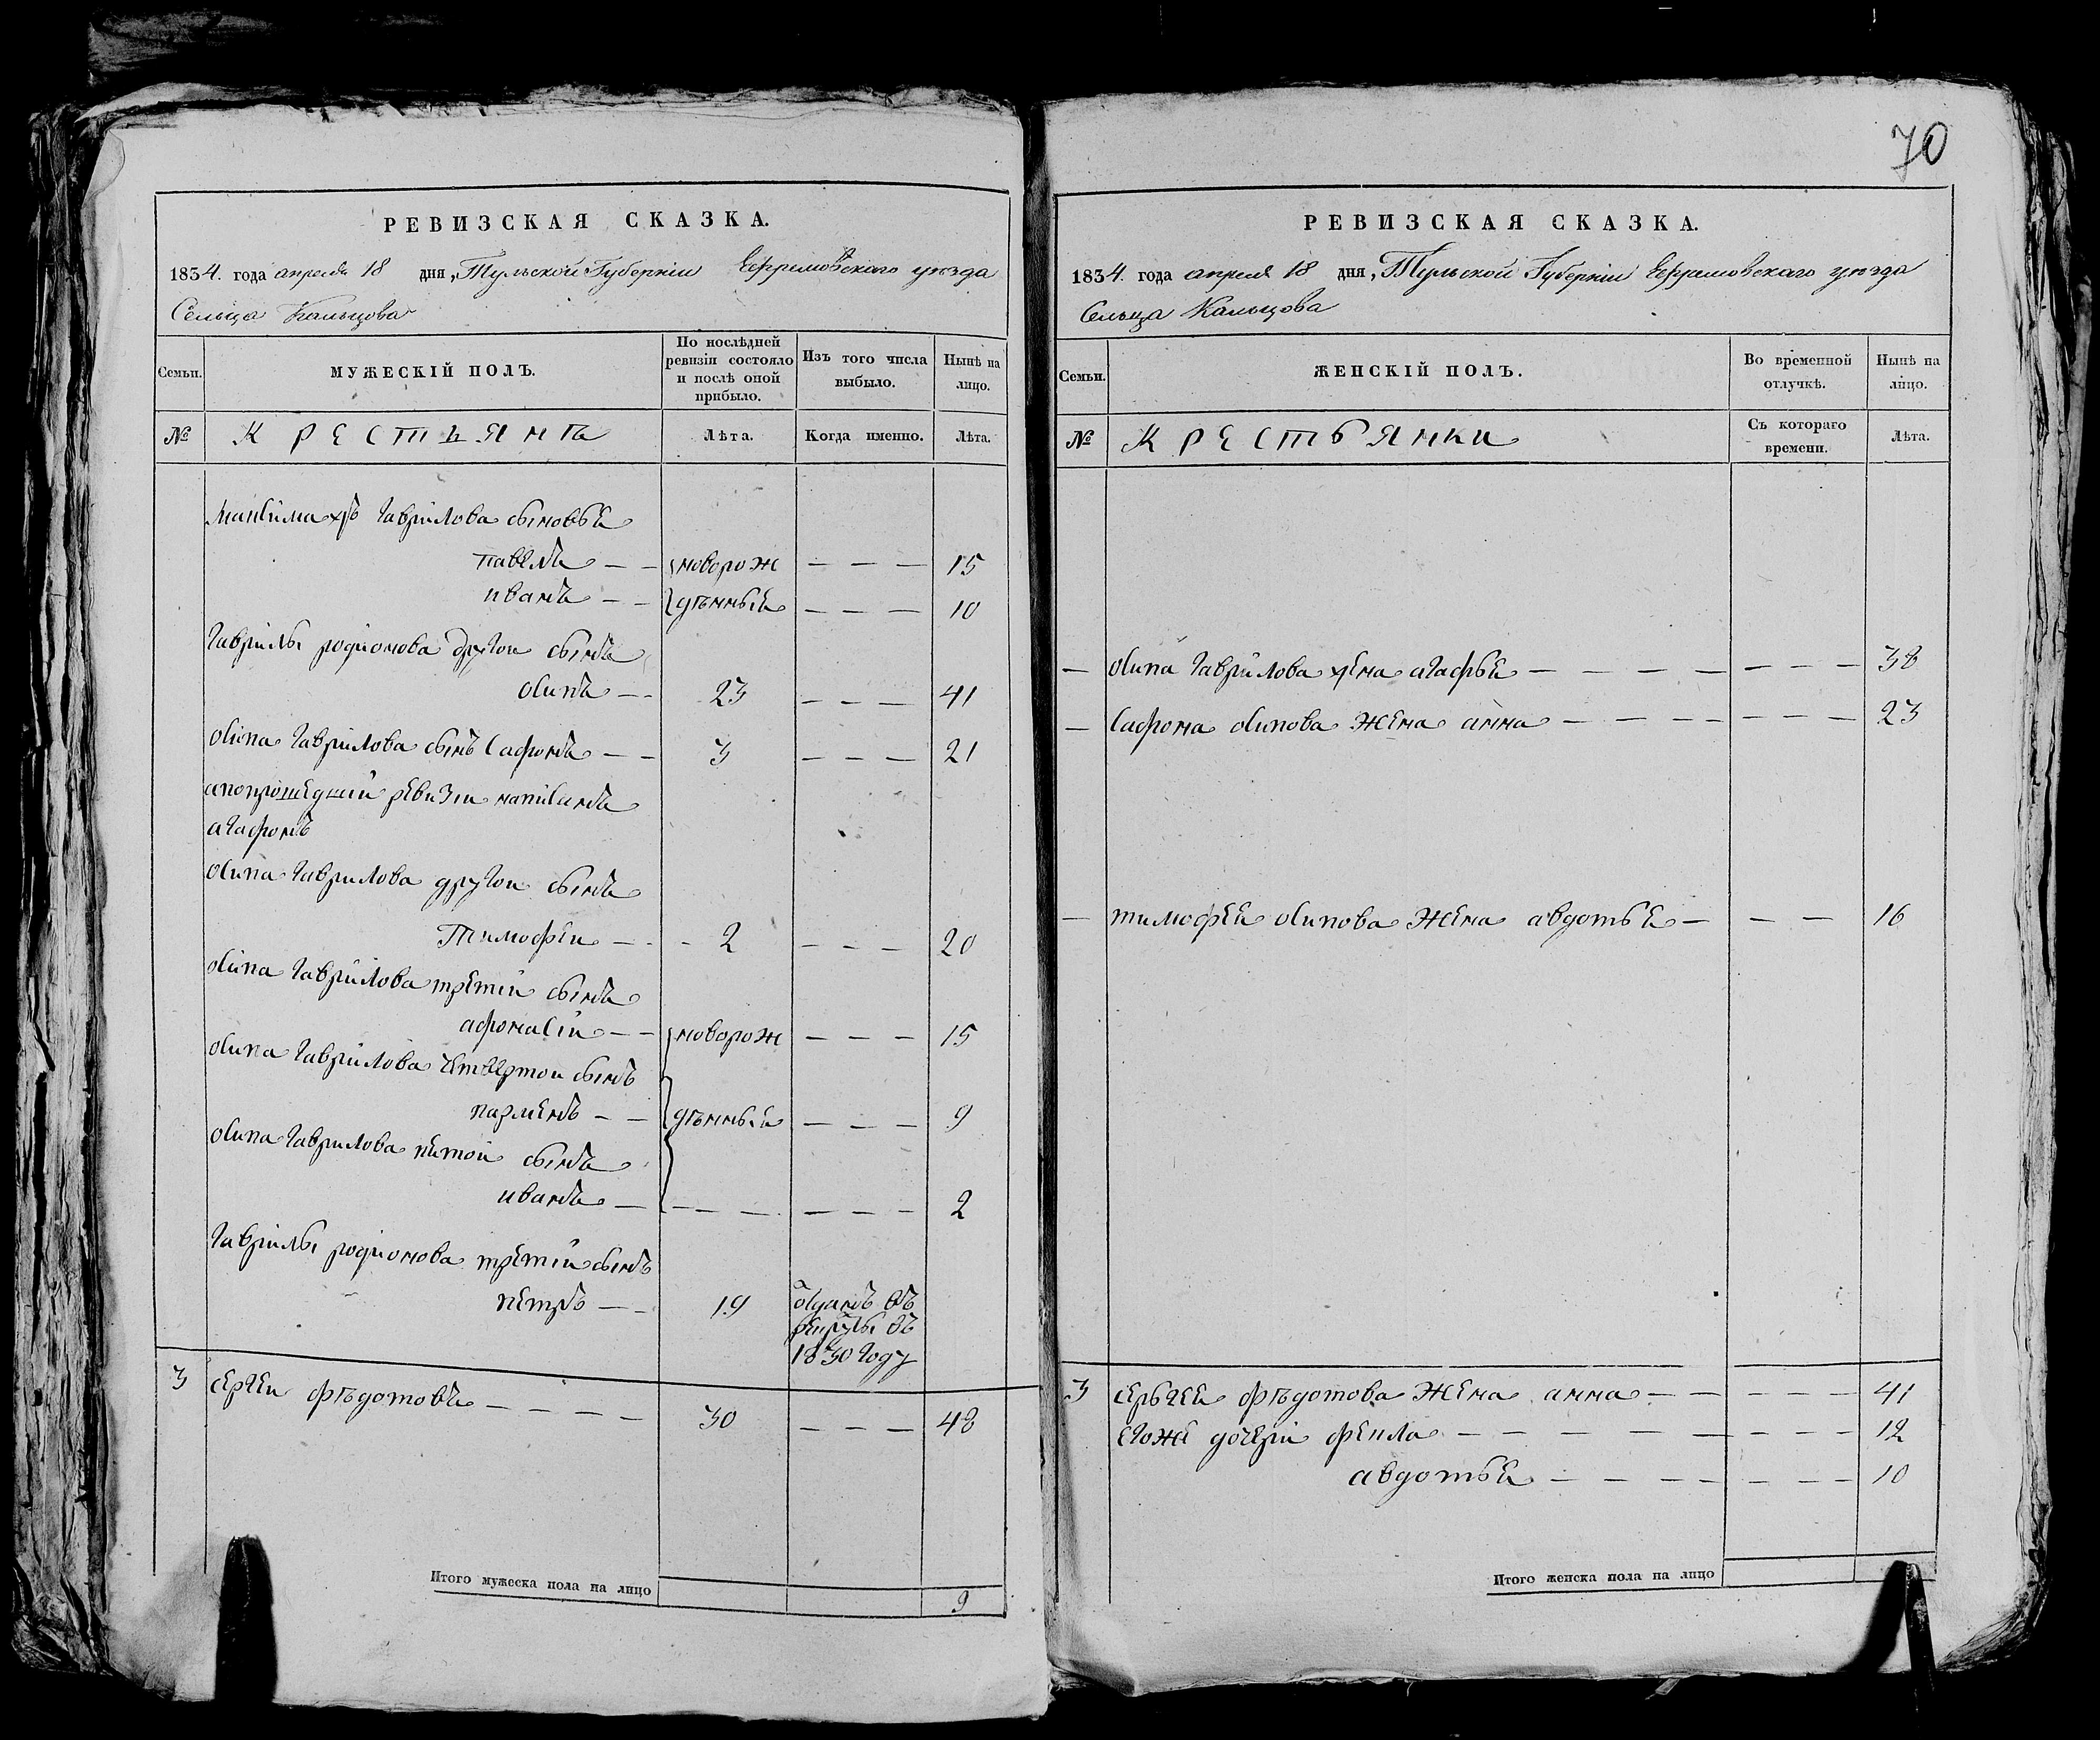 70
РЕВИЗСКАЯ СКАЗКА.
1834. года апреля 18 дня, Тульской Губернiи Ефремовскаго уезда
Сельца Кальцова
Семьи.
МУЖЕСКIЙ ПОЛЪ.
По послѣдней ревизiи состояло и послѣ оной прибыло.
Изъ того числа выбыло.
Нынѣ на лицо.
№
крестьяня
Лѣта.
Когда именно.
Лѣта.
гаврилова сыновье
павелъ — — новорож — — — 15
иванъ — — денные — — — 10
гаврилы родионова другои сынъ
осипъ — — 23 — — — 41
осипа гаврилова сынъ сафонъ — — 3 — — — 21
апопрошедшiи ревизiи написанъ
агафонъ
осипа гаврилова другои сынъ
Тимофеи — — 2 — — — 20
осипа гаврилова третiи сынъ
афонасiи — — новорож — — — 15
осипа гаврилова четвертои сынъ
парменъ — — денные — — — 9
осипа гаврилова пятои сынъ
иванъ — — — — — — — 2
гаврилы родионова третiи сынъ
петръ — — 19 отданъ въ
рекруты въ
1830 году
3 сергеи федотовъ — — — — 30 — — — 48
Итого мужеска пола на лицо 9
РЕВИЗСКАЯ СКАЗКА.
1834. года апреля 18 дня, Тульской Губернiи Ефремовскаго уезда
Сельца Кальцова
Семьи.
ЖЕНСКIЙ ПОЛЪ.
Во временной отлучкѣ.
Нынѣ на лицо.
№
крестьянки
Съ котораго времени.
Лѣта.
— осипа гаврилова жена агафье — — — — — — — 38
— сафона осипова жена анна — — — — — — — 23
— тимофее осипова жена авдотье — — — 16
3 сергее федотова жена анна — — — — — 41
егоже дочерiи фекла — — — — — — — — 12
авдотье — — — — — — — 10
Итого женска пола на лицо